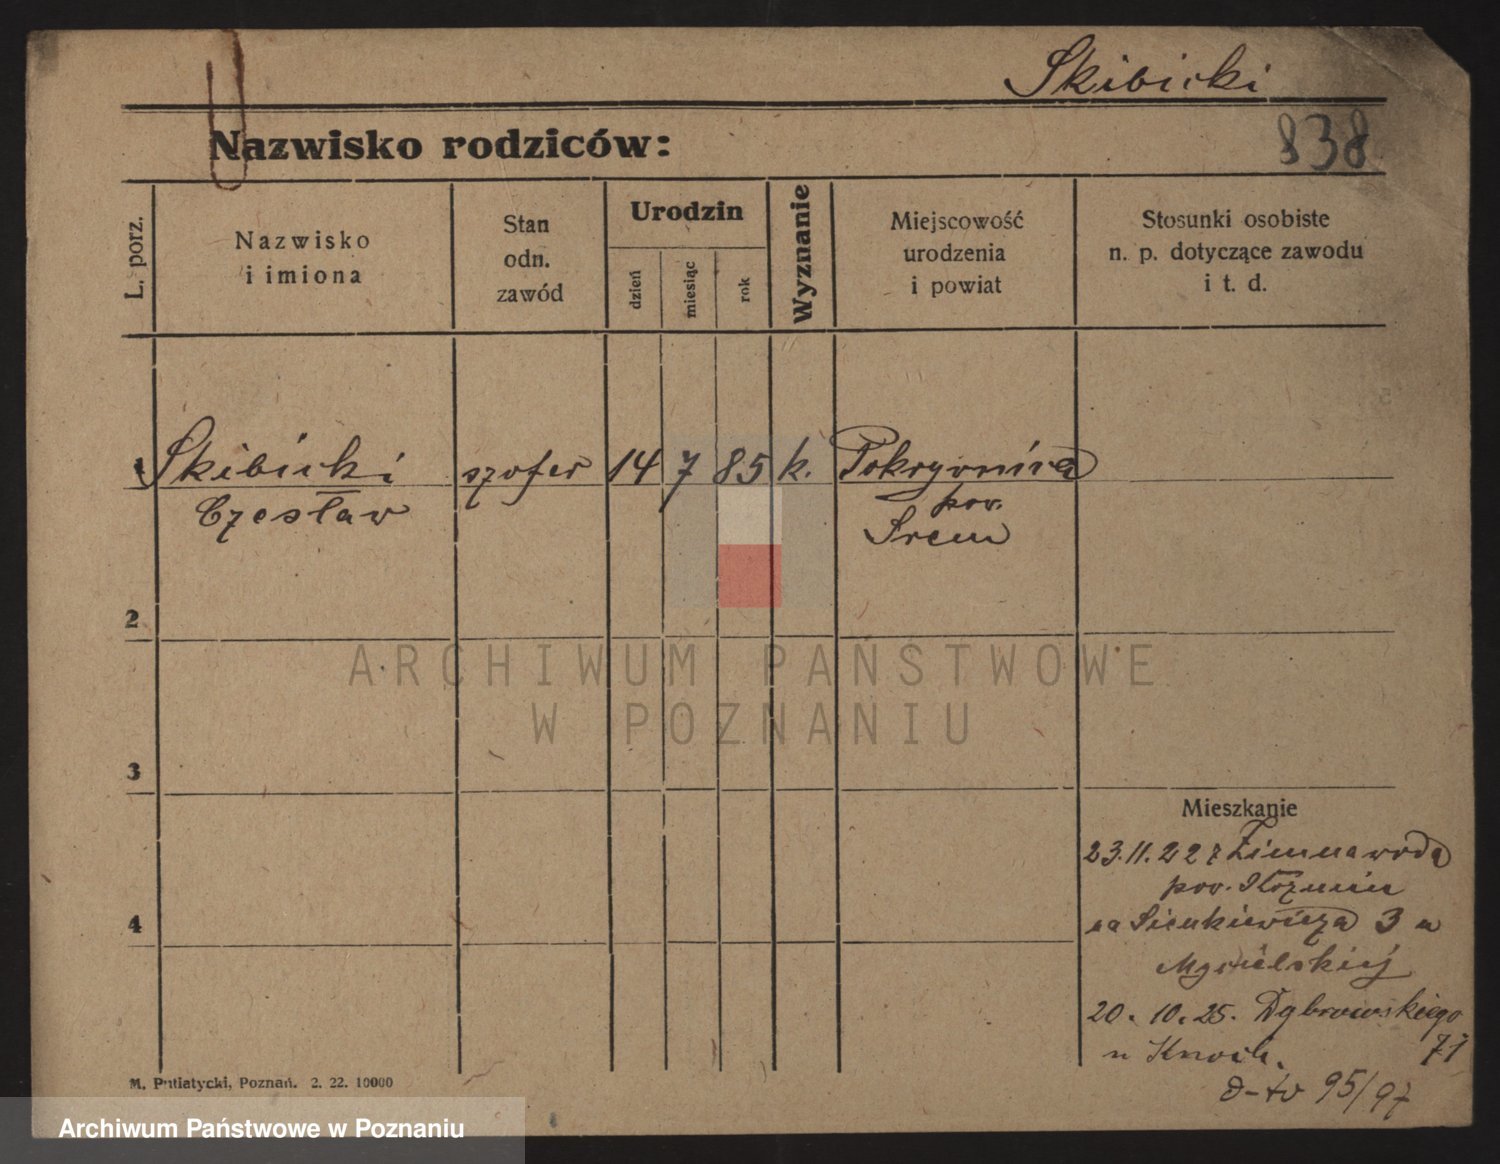 Skibicki
838
Nazwisko rodziców:
L. porz.
Nazwisko
i imiona
Stan
odn.
zawód
Urodzin
dzień
miesiąc
rok
Wyznanie
Miejscowość
urodzenia
i powiat
Stosunki osobiste
n. p. dotyczące zawodu
i t. d.
1 Skibicki szofer 14 7 85 k. Pokrzywnica
Czesław pow.
Śrem
2
3
4
ARCHIWUM PAŃSTWOWE
W POZNANIU
Mieszkanie
23.11.22 z Zimnawoda
pow.
na Sienkiewicza 3 u
Mycielskiej
20.10.25. Dąbrowskiego
u 71
d-to 95/97
M. Putiatycki, Poznań. 2. 22. 10000
Archiwum Państwowe w Poznaniu